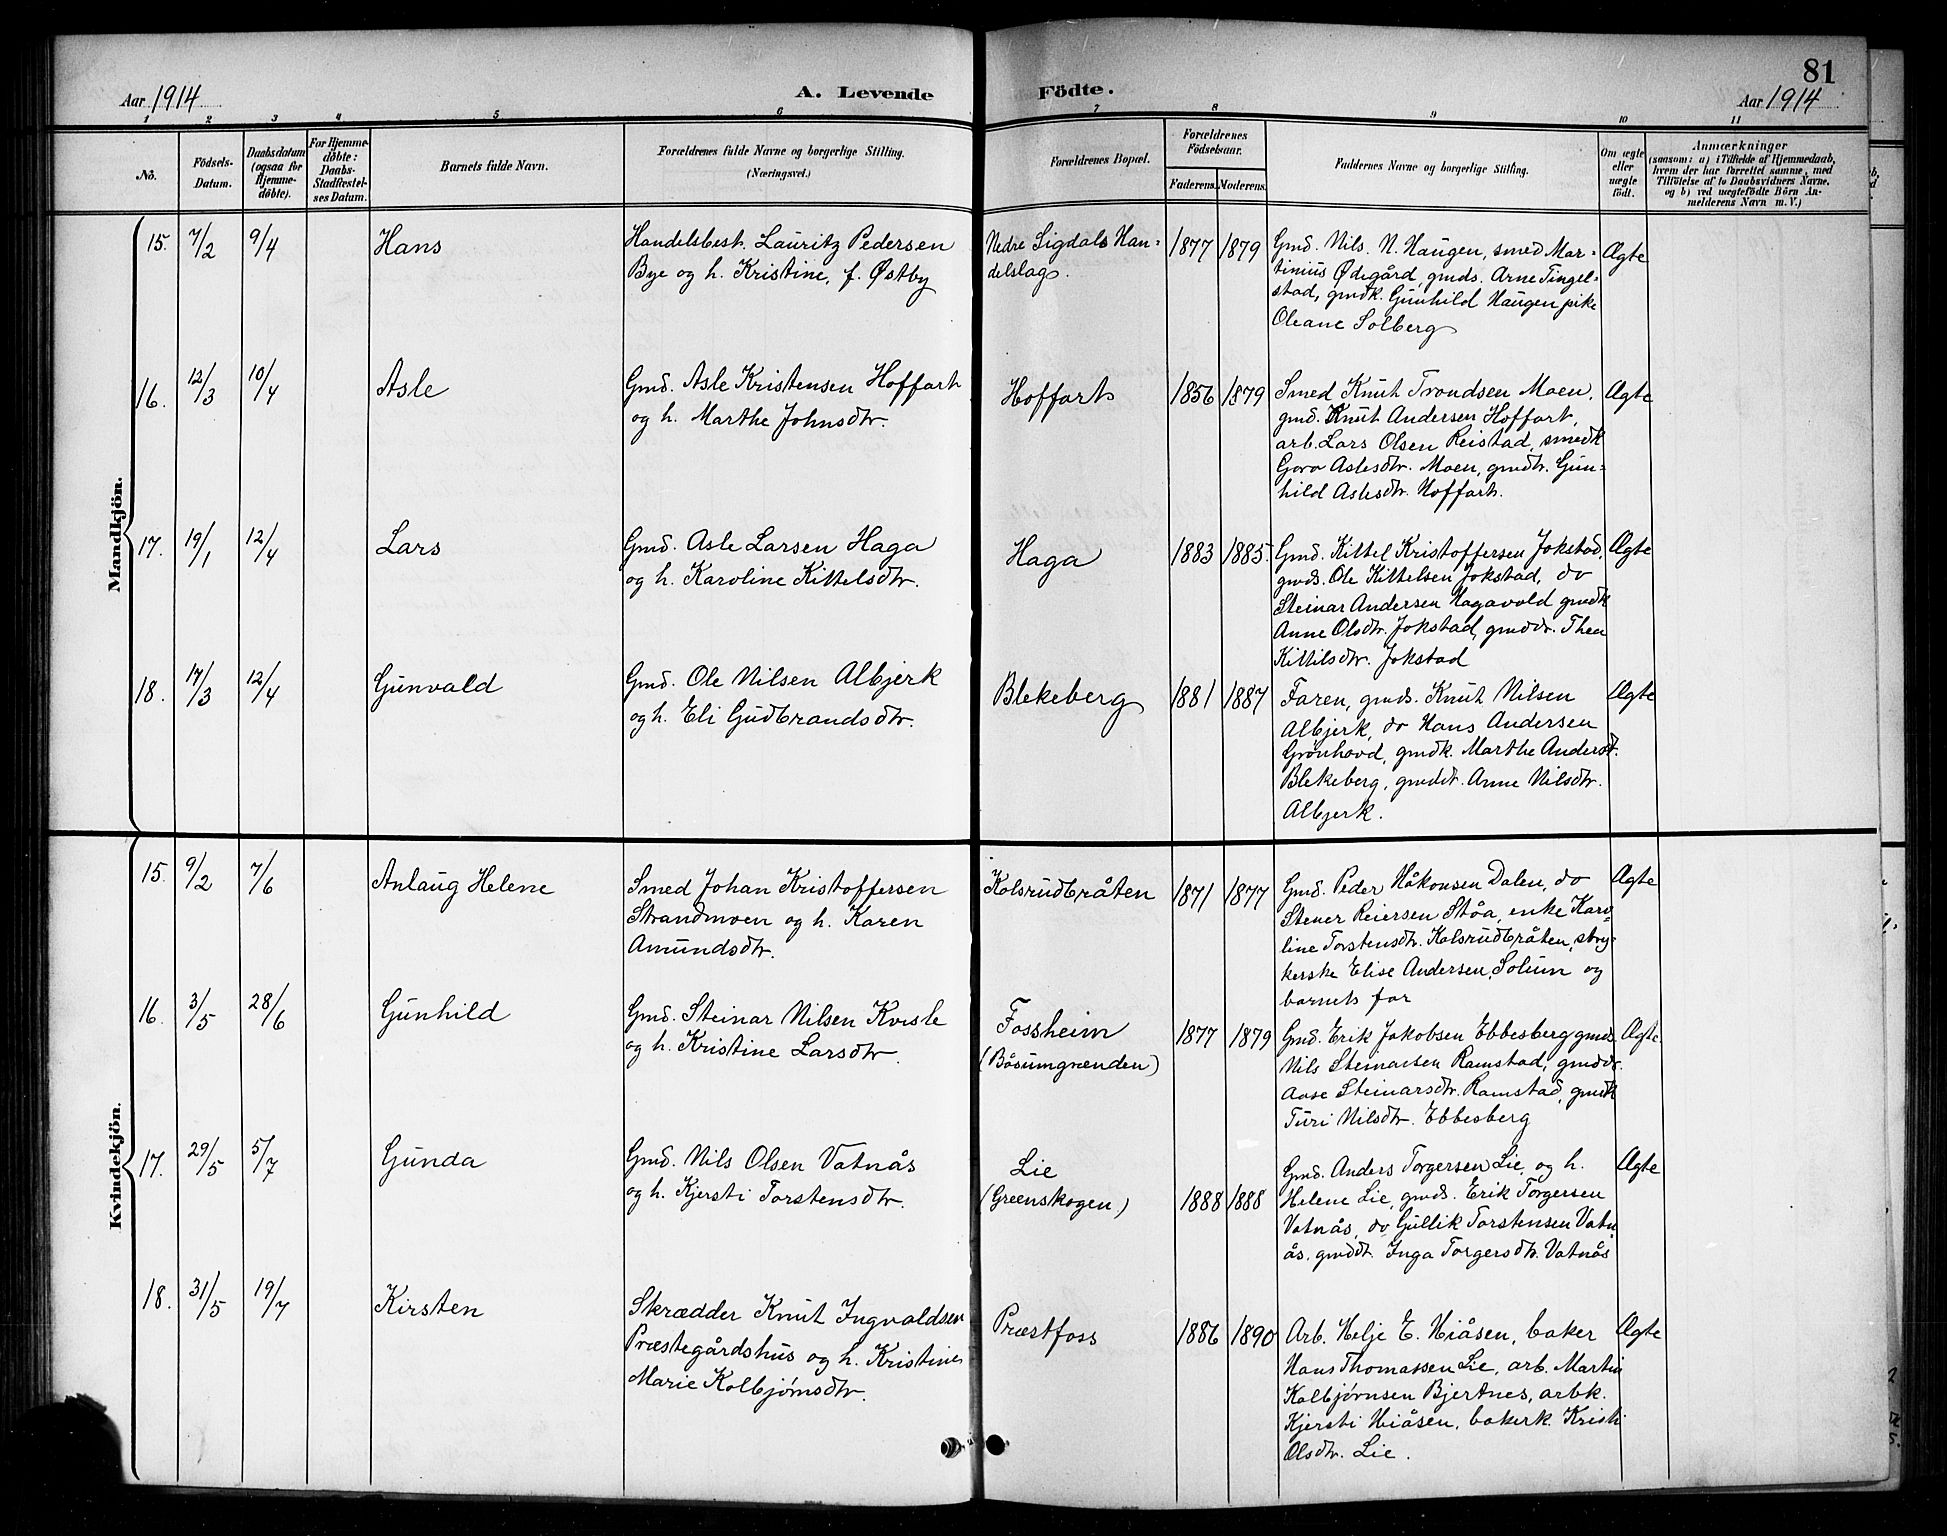 81
Aar 1914
A. Levende
Födte.
Aar 1914
1 2 3 4 5 6 7 8 9 10 11
No.
Födsels-
Datum.
Daabsdatum
(ogsaa for
Hjemme-
døbte).
For Hjemme-
døbte:
Daabs-
Stadfæstel-
ses Datum.
Barnets fulde Navn.
Forældrenes fulde Navne og borgerlige Stilling.
(Næringsvei.)
Forældrenes Bopæl.
Forældrenes
Födselsaar.
Faderens.
Moderens.
Faddernes Navne og borgerlige Stilling.
Om ægte
eller
uægte
födt.
Anmærkninger
(saasom: a) i Tilfælde af Hjemmedaab,
hvem der har forrettet samme, med
Tilföielse af to Daabsvidners Navne,
og b) ved uægtefödte Börn An-
melderens Navn m. V.)
Mandkjön.
15. 7/2 9/4 Hans
Handelsbest. Lauritz Pedersen
Bye og h. Kristine, f. Østby
Nedre Sigdals Han-
delslag.
1877 1879
Gmd. Nils N. Haugen, smed Mar-
tinius Ødegård, gmds. Arne Tingel-
stad, gmdk. Gunhild Haugen pike
Oleane Solberg
Ægte
16. 12/3 10/4 Asle
Gmd. Asle Kristensen Hoffart
og h. Marthe Johnsdtr.
Hoffart
1856 1879
Smed Knut Trondsen Moen,
gmd. Knut Andersen Hoffart,
arb. Lars Olsen Reistad, smedk
Goro Aslesdtr. Moen, gmdtr. Gun-
hild Aslesdtr. Hoffart.
Ægte
17. 19/1 12/4 Lars
Gmd. Asle Larsen Haga
og h. Karoline Kittelsdtr.
Haga
1883 1885.
Gmd. Kittel Kristoffersen Jokstad,
gmds. Ole Kittelsen Jokstad, do
Steinar Andersen Hagavold gmdk
Anne Olsdtr. Jokstad, gmddr. Thea
Kittilsdtr. Jokstad
Ægte
18. 17/3 12/4 Gunvald
Gmd. Ole Nilsen Albjerk
og h. Eli Gudbrandsdtr.
Blekeberg
1881 1887
Faren, gmds. Knut Nilsen
Albjerk, do Hans Andersen
Grønhovd, gmdk. Marthe Andersd.
Blekeberg, gmddt. Anne Nilsdtr.
Albjerk.
Ægte
Kvindekjön.
15. 9/2 7/6 Anlaug Helene
Smed Johan Kristoffersen
Strandmoen og h. Karen
Amundsdtr.
Kolsrudbråten
1871 1877
Gmd. Peder Håkonsen Dalen, do
Stener Reiersen Støa, enke Karo-
line Torstensdtr. Kolsrudbråten, stry-
kerske Elise Andersen, Solum og
barnets far
Ægte
16. 3/5 28/6 Gunhild
Gmd. Steinar Nilsen Kvisle
og h. Kristine Larsdtr.
Fossheim
(Båsumgrænden)
1877 1879
Gmd. Erik Jakobsen Ebbesberg gmds.
Nils Steinarsen Ramstad, gmddr.
Aase Steinarsdtr. Ramstad, gmdk
Turi Nilsdtr. Ebbesberg
Ægte.
17. 29/5 5/7 Gunda
Gmd. Nils Olsen Vatnås
og h. Kjersti Torstensdtr.
Lie
(Greenskogen)
1888 1888
Gmd. Anders Torgersen Lie, og h.
Helene Lie, gmds. Erik Torgersen
Vatnås, do Gullik Torstensen Vatn-
ås, gmddt. Inga Torgersdtr. Vatnås
Ægte
18. 31/5 19/7 Kirsten
Skrædder Knut Ingvaldsen
Præstegårdshus og h. Kristine
Marie Kolbjørnsdtr.
Præstfoss
1886 1890
Arb. Helje E. Hiåsen, baker
Hans Thomassen Lie, arb. Martin
Kolbjørnsen Bjertnes, arbk.
Kjersti Hiåsen, bakerk. Kristi
Olsdtr. Lie.
Ægte